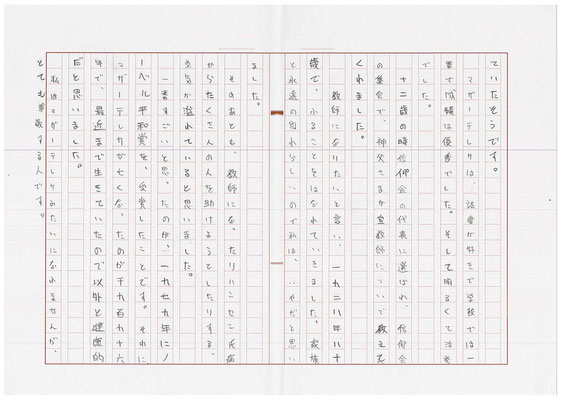 ていたそうです。
マザーテレサは、読書が好きで学校では一
番で成績は優秀でした。そして明るくて活発
でした。
十二歳の時信仰会の代表に選ばれ、信仰会
の集会で、神父さまが宣教師について教えて
くれました。
教師になりたいと言い、一九二八年に十
歳で、ふるさとをはなれていきました。家族
と永遠の別れらしいので私は、いやだと思い
ました。
そのあとも、教師になったりハンセン氏病
からたくさんの人を助けようとしたりする、
勇気が溢れていると思いました。
一番すごいと思ったのが、一九七九年にノ
ーベル平和賞を、受賞したことです。それに
マザーテレサが亡くなったのが千九百九十六
年で、最近まで生きていたので以外と健康的
だと思いました。
私はマザーテレサみたいになれませんが、
とても尊敬する人です。